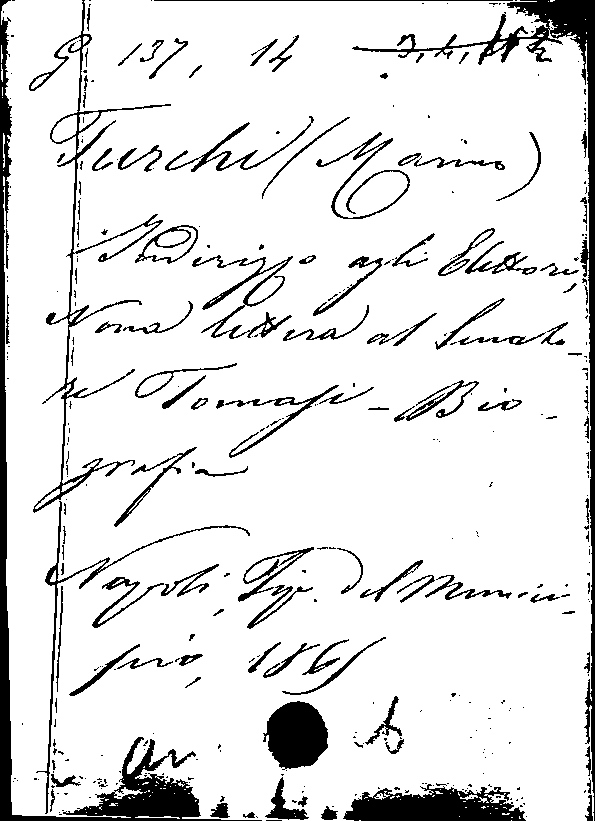 G 137, 14
Turchi (Marino)
Indirizzo agli Elettori,
Nona lettera al Senato-
re Tomasi - Bio-
grafia
Napoli, Tip. del Munici-
pio, 1865